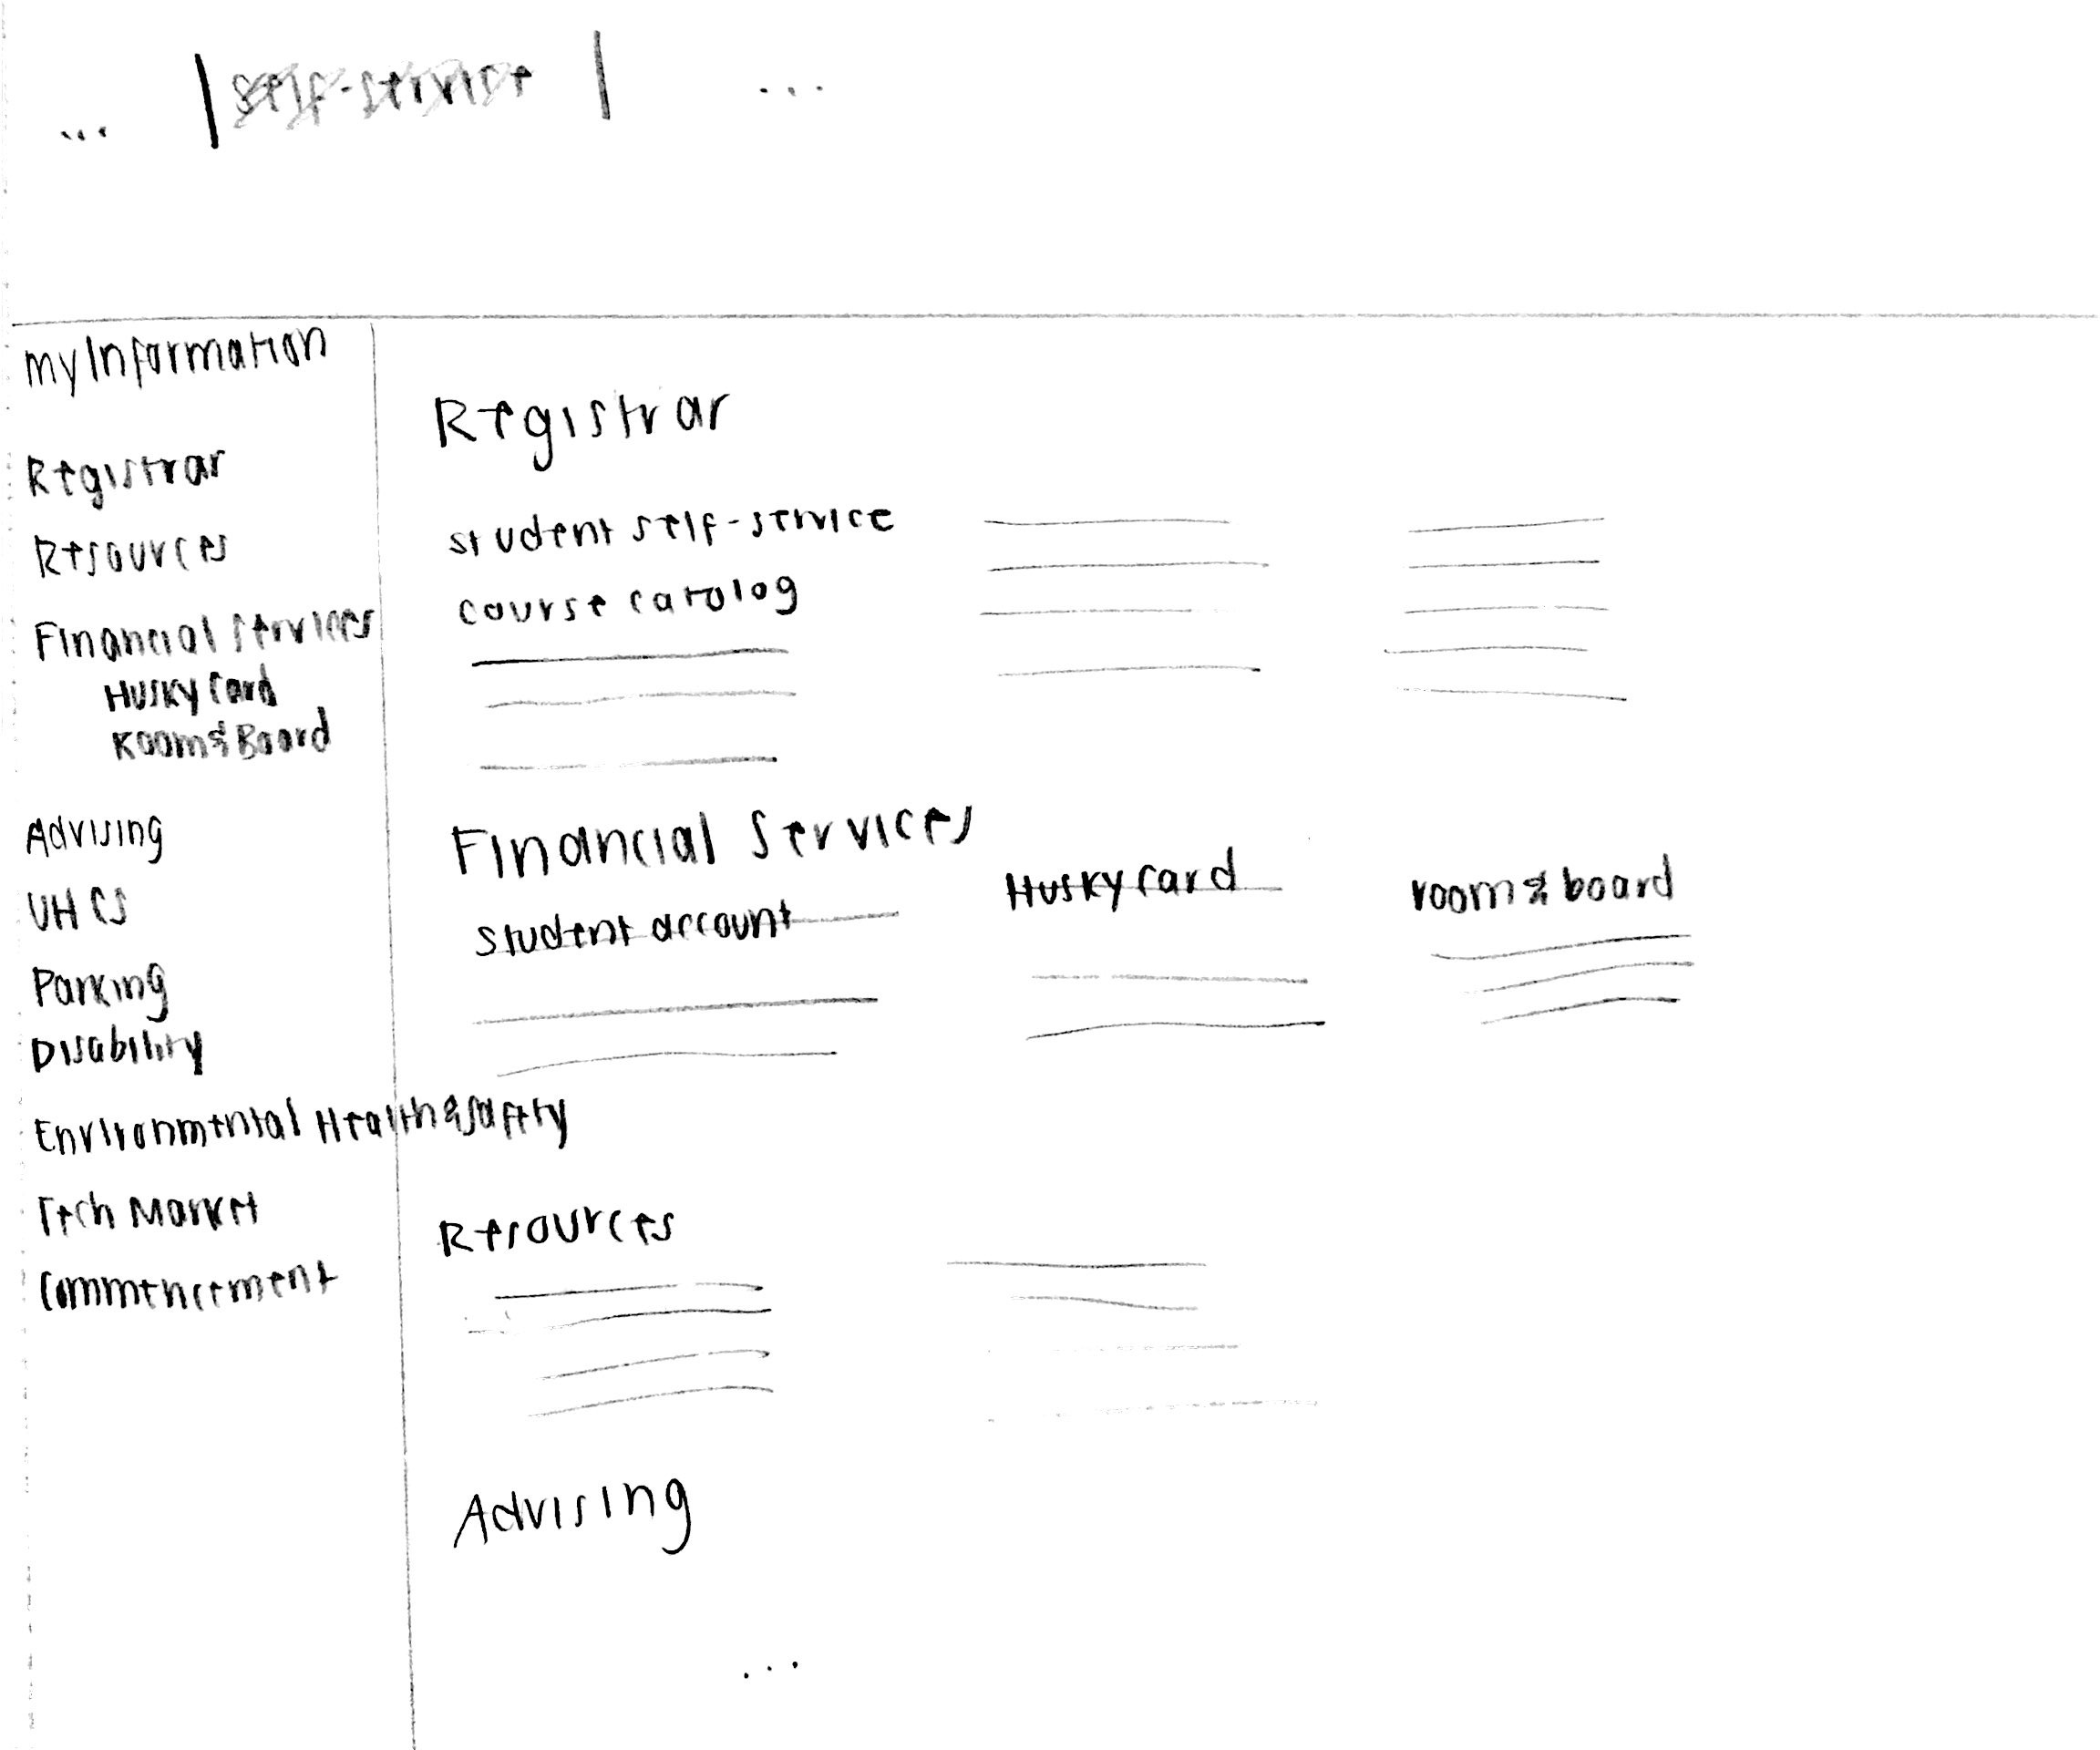 ... | self-service | ...
myInformation
Registrar
Resources
Financial Services
Husky Card
Room & Board
Advising
UHCS
Parking
Disability
Environmental Health & Safety
Tech Market
Commencement
Registrar
student self-service
course catolog
Financial Services
student account
Husky Card
room & board
Resources
Advising
...